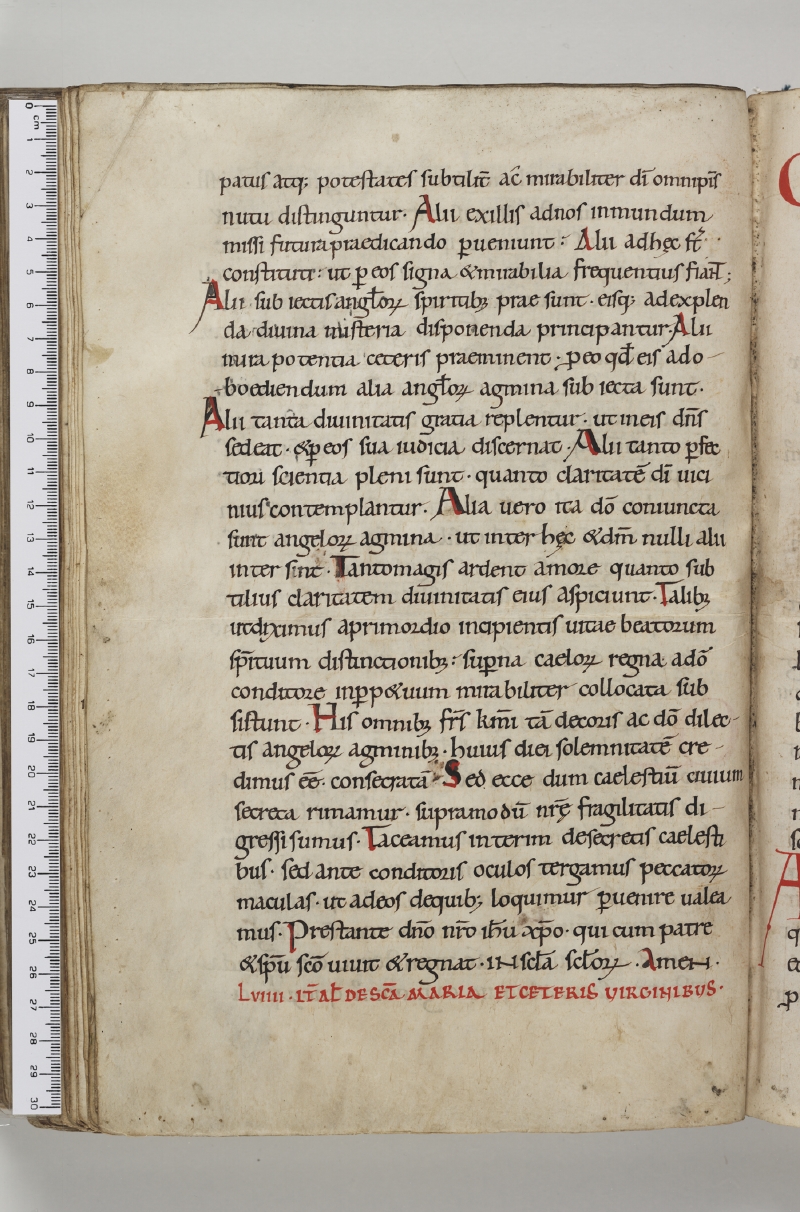 patus atq; potestates subtilit̄ ac̄ mirabiliter dī omnipīs
nutu distinguntur· Alii exillis adnos inmundum
missi futura praedicando ꝑueniunt : Alii adhęc st̄ ·
constituti : ut ꝑ eos signa &mirabilia frequentius fiant;
Alii sub iectis angłoꝝ spiritibꝫ prae sunt· eisq; adexplen
da diuina misteria disponenda principantur· Alii
mira potentia ceteris praeminent· ꝑeo qđ eis ado
boediendum alia angłoꝝ agmina sub iecta sunt·
Alii tanta diuinitatis gratia replentur· ut ineis dn̄s
sedeat· &ꝑeos sua iudicia discernat· Alii tanto ꝑfec
tiori scientia pleni sunt· quanto claritatē dī uici
nius contemplantur· Alia uero ita dō coniuncta
sunt angeloꝝ agmina·· ut inter hęc &dm̄ nulli alii
inter sint· Tantomagis ardent amore quanto sub
tilius claritatem diuinitatis eius aspiciunt· Talibꝫ
utdiximus aprimordio incipientis uitae beatorum
sp̄ituum distinctionibꝫ : suꝑna caeloꝝ regna adō
conditore inꝑp&uum mirabiliter collocata sub
sistunt· His omnibꝫ fr̄s km̄i tā decoris ac dō dilec-
tis angeloꝝ agminibꝫ· huius diei solemnitatē cre-
dimus eē· consecratā· Sed ecce dum caelestiū ciuium
secreta rimamur· supramodū nr̄ę fragilitatis di-
gressi sumus· Taceamus interim desecretis caelesti
bus· sed ante conditoris oculos tergamus peccatoꝝ
maculas· ut adeos dequibꝫ loquimur ꝑuenire ualea
mus· Prestante dn̄o nr̄o ih̄u xp̄o· qui cum patre
&sp̄u scō uiuit &regnat· IN scła scłoꝝ· AmeN·
LVIIII · IT̄ AŁ DE SCA MARIA ET CETERIS VIRGINIBUS·